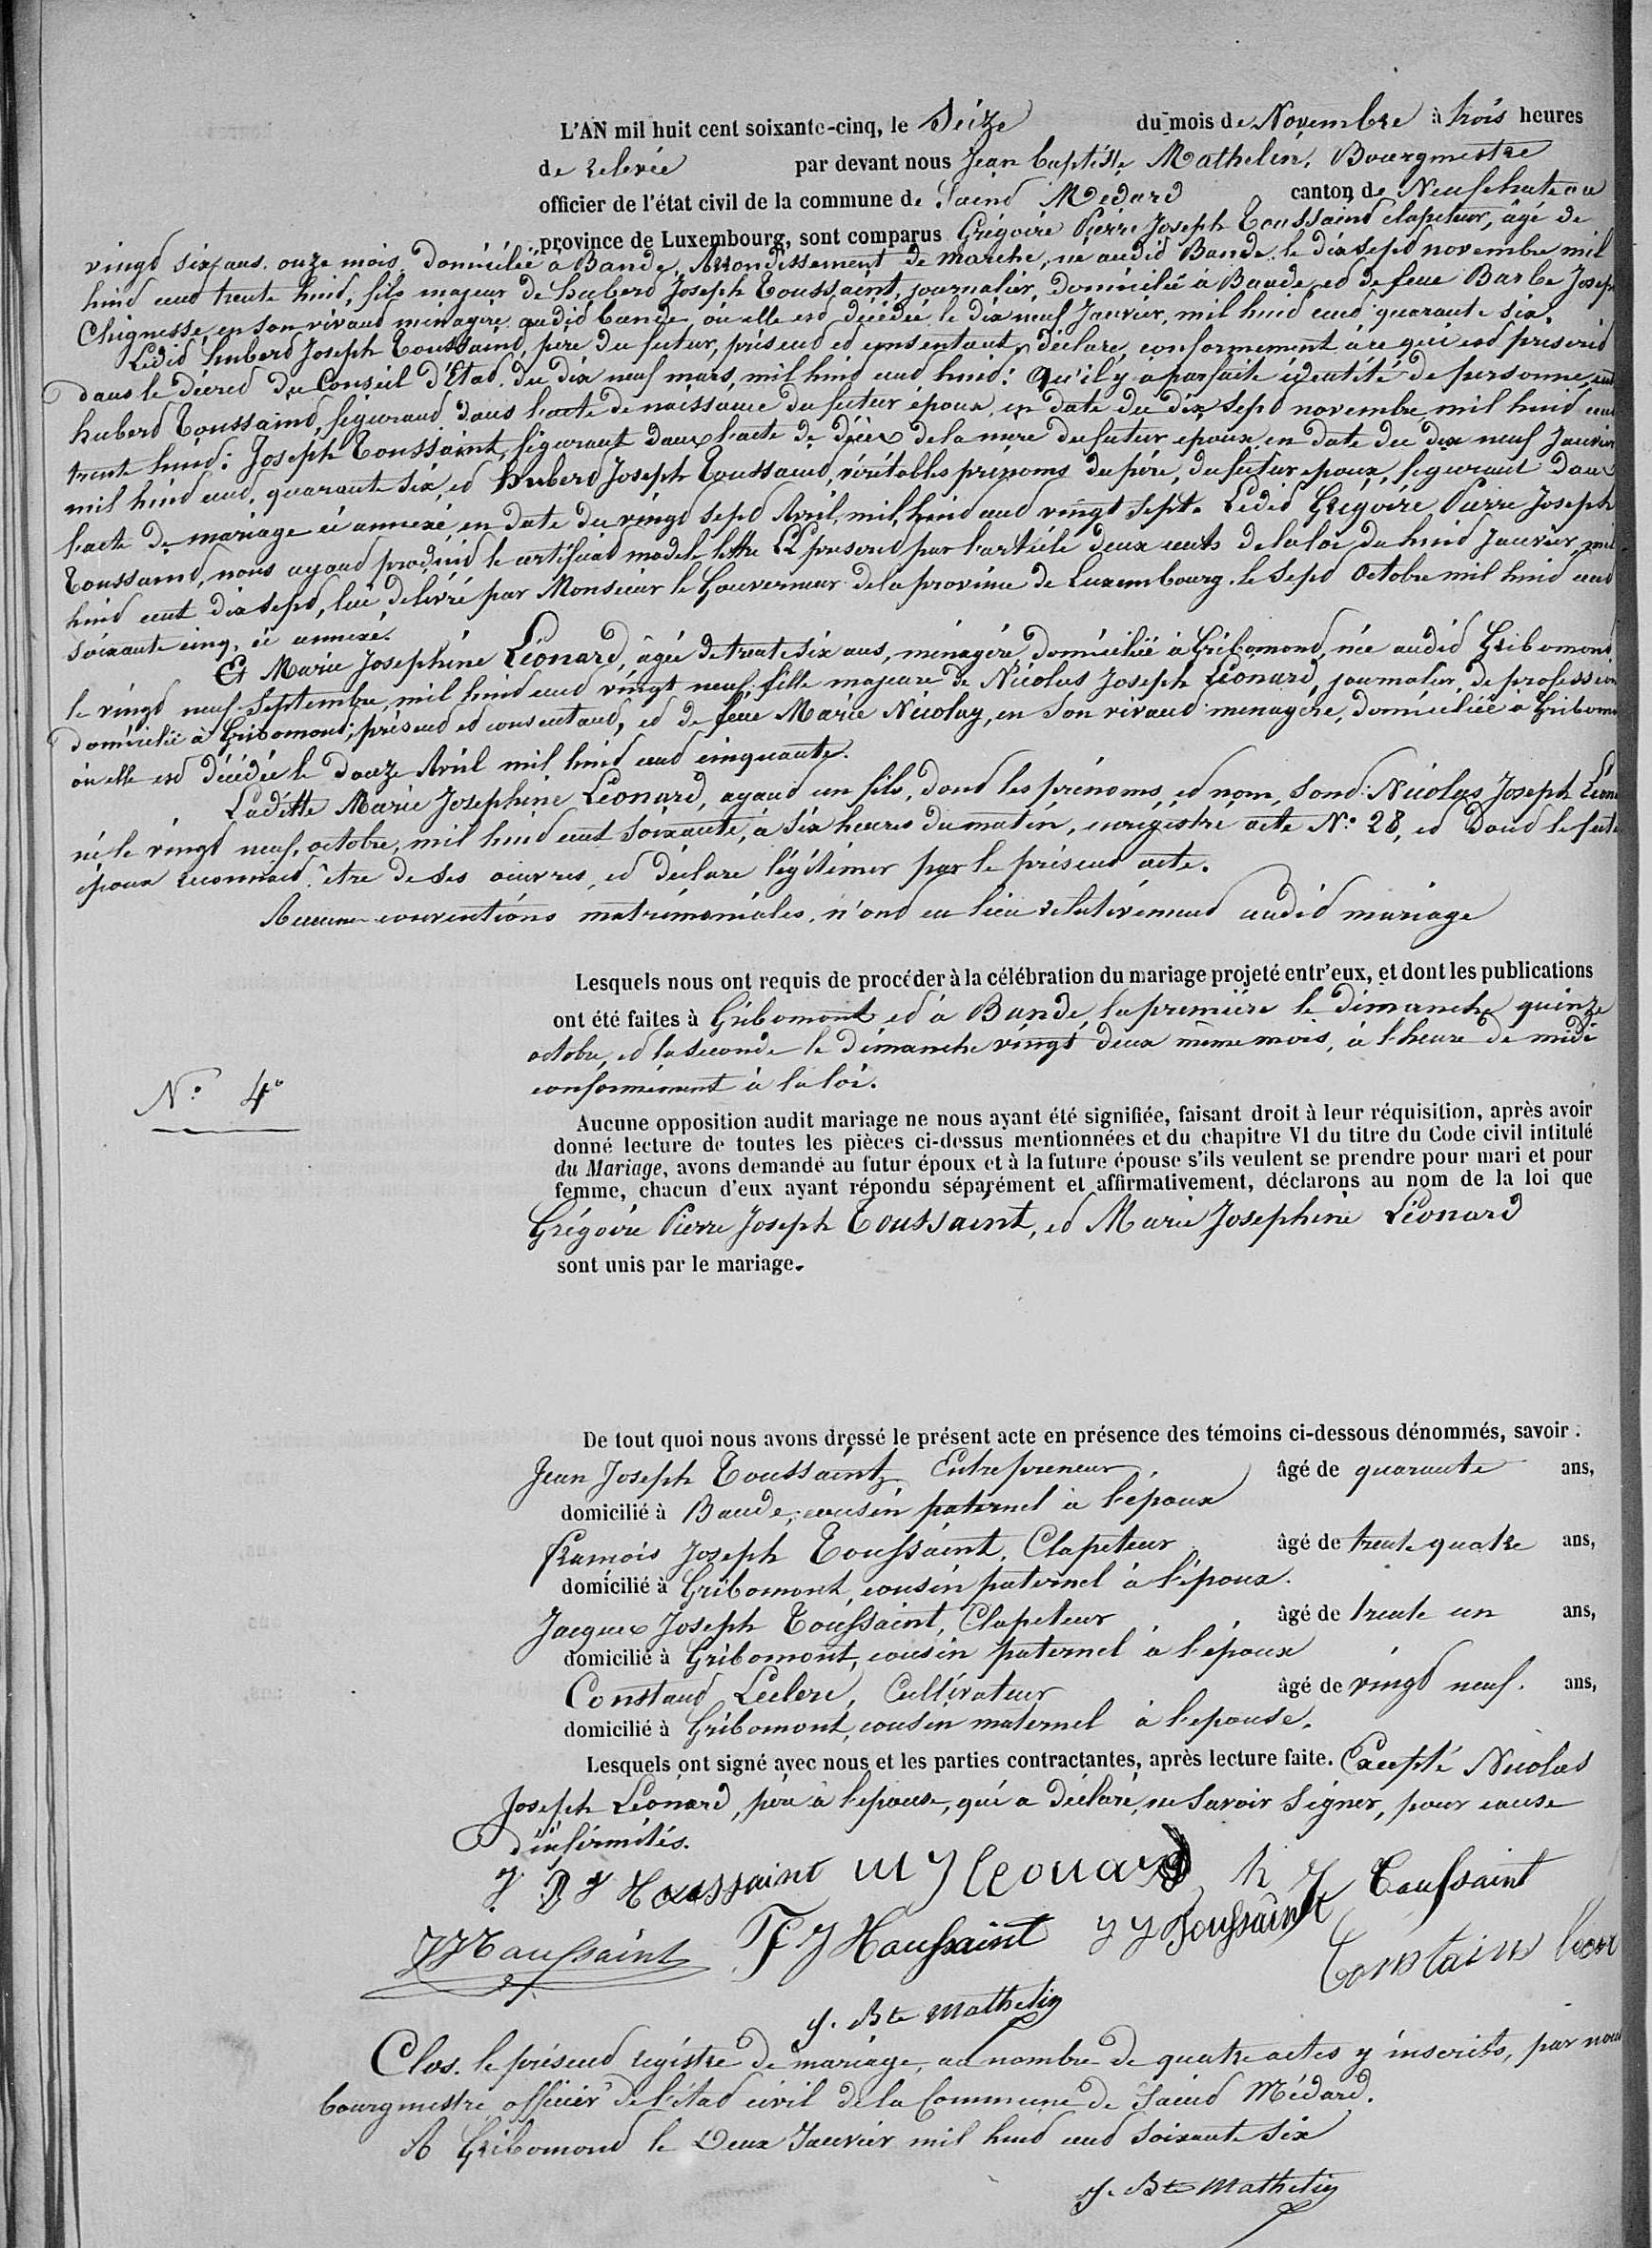 L'AN mil huit cent soixante-cinq, le Seize du mois de Novembre à trois heures
de relevée par devant nous Jean baptiste Mathelin, Bourgmestre
officier de l'état civil de la commune de Saind Médard canton de Neufchateau
province de Luxembourg, sont comparus Grégoire Pierre Joseph Toussaind clapeteur, âgé de
vingd six ans onze mois, domicilié à Bande, Arrondissement de Marche, né audid Bande le dix sepd novembre mil
huid cend trente huid, fils majeur de huberd Joseph Toussaint, journalier, domicilié à Bande, ed de feue Barbe Joseph
Chignesse, en son vivand ménagère audid bande, où elle esd décédée le dix neuf Janvier, mil huid cend quarante six.
Ledid huberd Joseph Toussaind, père du futur, présend ed consentant, déclare, conformément à ce qui esd prescrid
dans le décred du Conseil d'Etad, du dix neuf mars, mil huid cend huid: qu'il y a parfaite identité de personne, end
huberd Toussaind, figurand dans l'acte de naissance du futur époux, en date du dix sepd novembre mil huid cend
trente huid: Joseph Toussaint, figurant dans l'acte de décès de la mère du futur époux, en date du dix neuf Janvier
mil huid cend, quarante six, ed huberd Joseph Toussaind, véritables prénoms du père, du futur époux, figurant dans
l'acte de mariage ci annexé, en date du vingd sepd Avril, mil huid cend vingt sept. Ledid Grégoire Pierre Joseph
Toussaind, nous ayand produid le certificad modèle lettre LL prescrid par l'article deux cents de la loi du huid Janvier mil
huid cent dix sepd, lui délivré par Monsieur le Gouverneur de la province de Luxembourg le sepd Octobre mil huid cend
soixante cinq, ci annexé.
Et Marie Josephine Léonard, âgée de trente six ans, ménagère, domiciliée à Gribomond, née audid Gribomond,
le vingd neuf Septembre, mil huid cend vingt neuf, fille majeure de Nicolas Joseph Léonard, journalier de profession
domicilié à Gribomond, présend ed consentand, ed de feue Marie Nicolay, en son vivand ménagère, domiciliée à Gribomo
où elle esd décédée le douze Avril mil huid cend cinquante.
Laditte Marie Josephine Léonard, ayand un fils, dond les prénoms, ed nom, sond: Nicolas Joseph Léon
né le vingd neuf, octobre, mil huid cent soixante, à six heures du matin, enregistré acte N.° 28, ed dond le futu
époux reconnaid être de ses œuvres, ed déclare légitimer par le présend acte.
Aucune conventions matrimoniales, n'ond eu lieu relativemend audid mariage
Lesquels nous ont requis de procéder à la célébration du mariage projeté entr'eux, et dont les publications
ont été faites à Gribomont ed à Bande, la première le dimanche quinze
octobre, ed la seconde le dimanche vingt deux même mois, à l'heure de midi
conformément à la loi.
N.° 4°
Aucune opposition audit mariage ne nous ayant été signifiée, faisant droit à leur réquisition, après avoir
donné lecture de toutes les pièces ci-dessus mentionnées et du chapitre VI du titre du Code civil intitulé
du Mariage, avons demandé au futur époux et à la future épouse s'ils veulent se prendre pour mari et pour
femme, chacun d'eux ayant répondu séparément et affirmativement, déclarons au nom de la loi que
Grégoire Pierre Joseph Toussaint, ed Marie Josephine Léonard
sont unis par le mariage.
De tout quoi nous avons dressé le présent acte en présence des témoins ci-dessous dénommés, savoir :
Jean Joseph Toussaint, Entrepreneur, âgé de quarante ans,
domicilié à Bande, cousin paternel à l'époux
François Joseph Toussaint, Clapeteur âgé de trente quatre ans,
domicilié à Gribomont, cousin paternel à l'époux.
Jacques Joseph Toussaint, Clapeteur âgé de trente un ans,
domicilié à Gribomont, cousin paternel à l'époux
Constand Leclerc, Cultivateur âgé de vingd neuf. ans,
domicilié à Gribomont, cousin maternel à l'épouse.
Lesquels ont signé avec nous et les parties contractantes, après lecture faite. Excepté Nicolas
Joseph Léonard, père à l'épouse, qui a déclaré, ne savoir signer, pour cause
d'infirmités.
Toussaint m J Leonard h J Toussaint
JJ Toussaint F J Toussaint J J Toussaint Constain
J. Bte Mathelin
Clos. le présend registre de mariage, au nombre de quatre actes y inscrits, par nous
bourgmestre officier de l'étad civil de la Commune de Saind Médard.
A Gribomond le Deux Janvier mil huid cend soixante six
J. Bte Mathelin